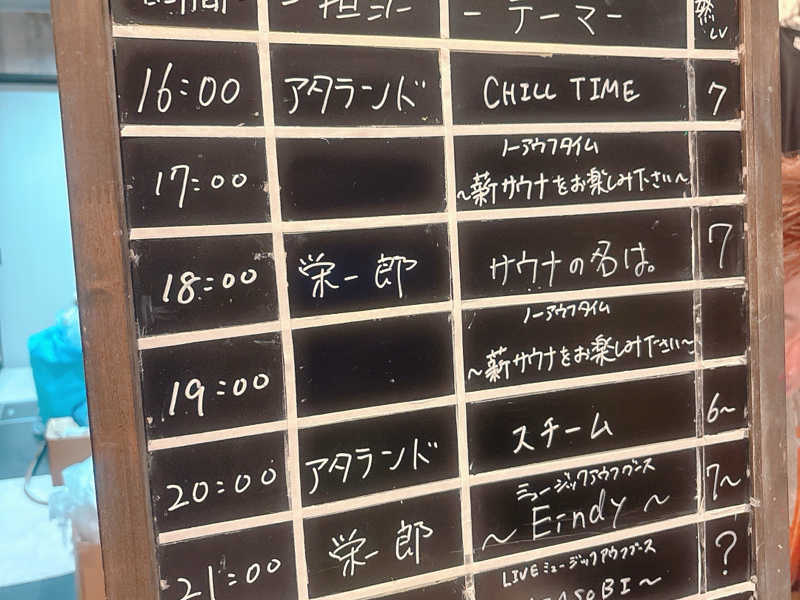 時間 担当 -テーマ- 熱LV
16:00 アタランド CHILL TIME 7
17:00 ノーアウフタイム
~薪サウナをお楽しみ下さい~
18:00 栄一郎 サウナの名は。 7
ノーアウフタイム
19:00 ~薪サウナをお楽しみ下さい~
20:00 アタランド スチーム 6~
ミュージックアウフグース
21:00 栄一郎 ~Eindy~ 7~
LIVEミュージックアウフグース
?